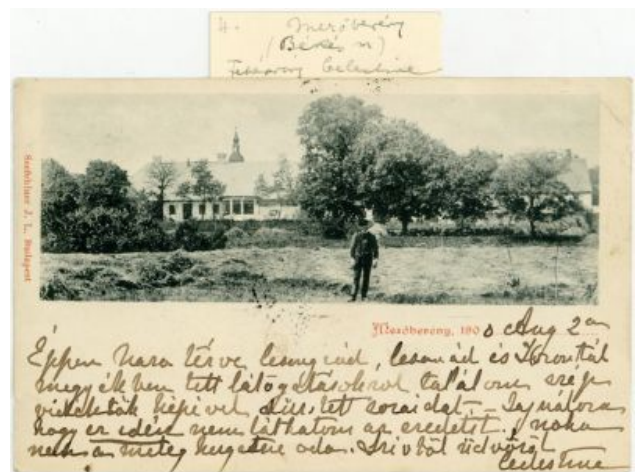 4. Mezőberény
(Békés m)
Celestine
Szrtchlner J. L. Budapest
Mezőberény, 1900 Aug 2án
Éppen haza térve Csongrád, Csanád és Torontál
megyékben tett látogatásokról találom szép
vidéktök képével díszitett soraidat. – Sajnálom
hogy ez idén nem láthatom az eredetit, noha
nem a meleg
Szivből üdvözöl
Celestine